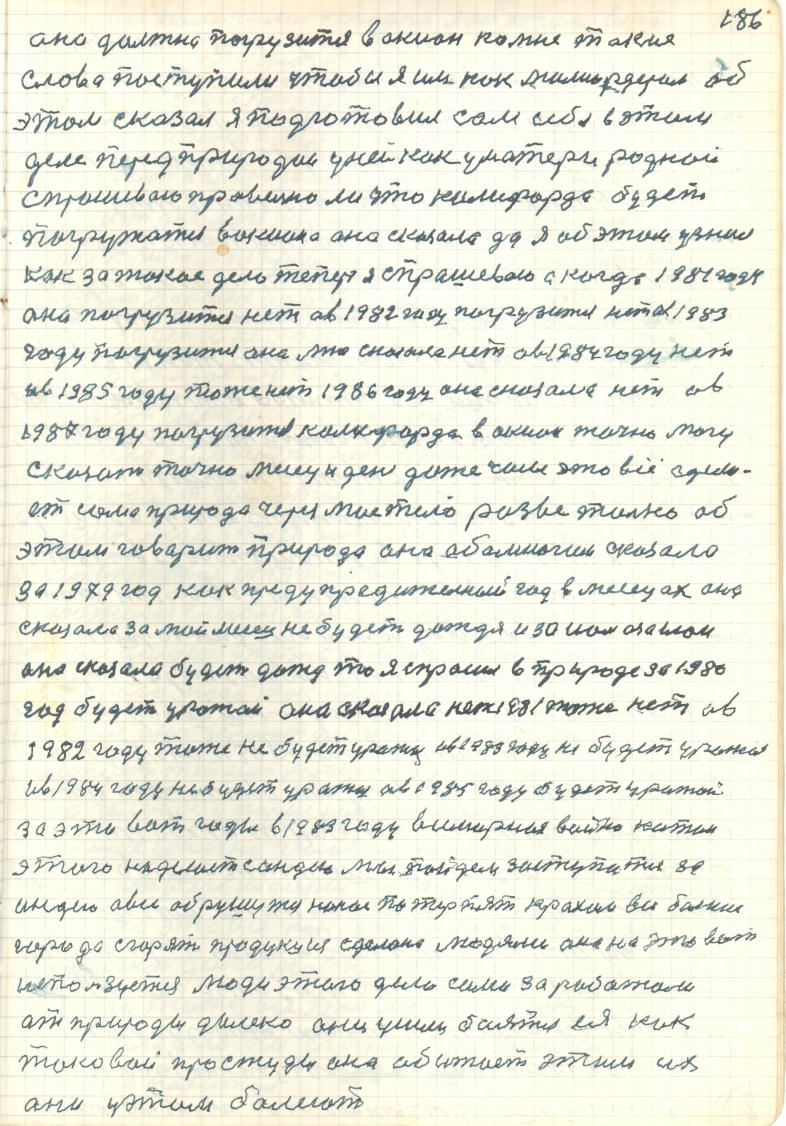 186
она должна погрузится в окион ко мне такия
слова поступили чтобы я им как милиардерам об
этом сказал я подготовил сам себя в этом
деле перед природаи у ней как у матери родной
спрашеваю правельно ли это калифорда будет
погружатся в окиона она сказала да я об этом узнал
как за такое дело тепер я спрашеваю а когда 1981 году
она погрузится нет а в 1982 году погрузится нет а 1983
году погрузится она мне сказала нет а в 1984 году нет
а в 1985 году тоже нет 1986 году она сказала нет а в
1987 году погрузится калифорда в окион точно могу
сказат точно месец и ден даже час это всё сдела-
ет сама природа через мое тело разве толко об
этом говарит природа она аба многим сказала
за 1979 год как предупредителный год в месецах она
сказала за май месец не будет дождя и за июн
она сказала будет дожд то я спросил в природе за 1980
год будет урожай она сказала нет 1981 тоже нет а в
1982 году тоже не будет урожая а в 1983 году не будет урожая
и в 1984 году не будет урожая а в 1985 году будет урожай
за эти вот годы в 1983 году всемирная война
этого наделает мы пойдем заступатся за
индею потерпят крахом все болшие
города сгорят продукция сделана людями она на это вот
исползуется люди этого дела сами заработали
ат природы далеко они ушли боятся ея как
таковой простуды она этим их
ани у этом болеют